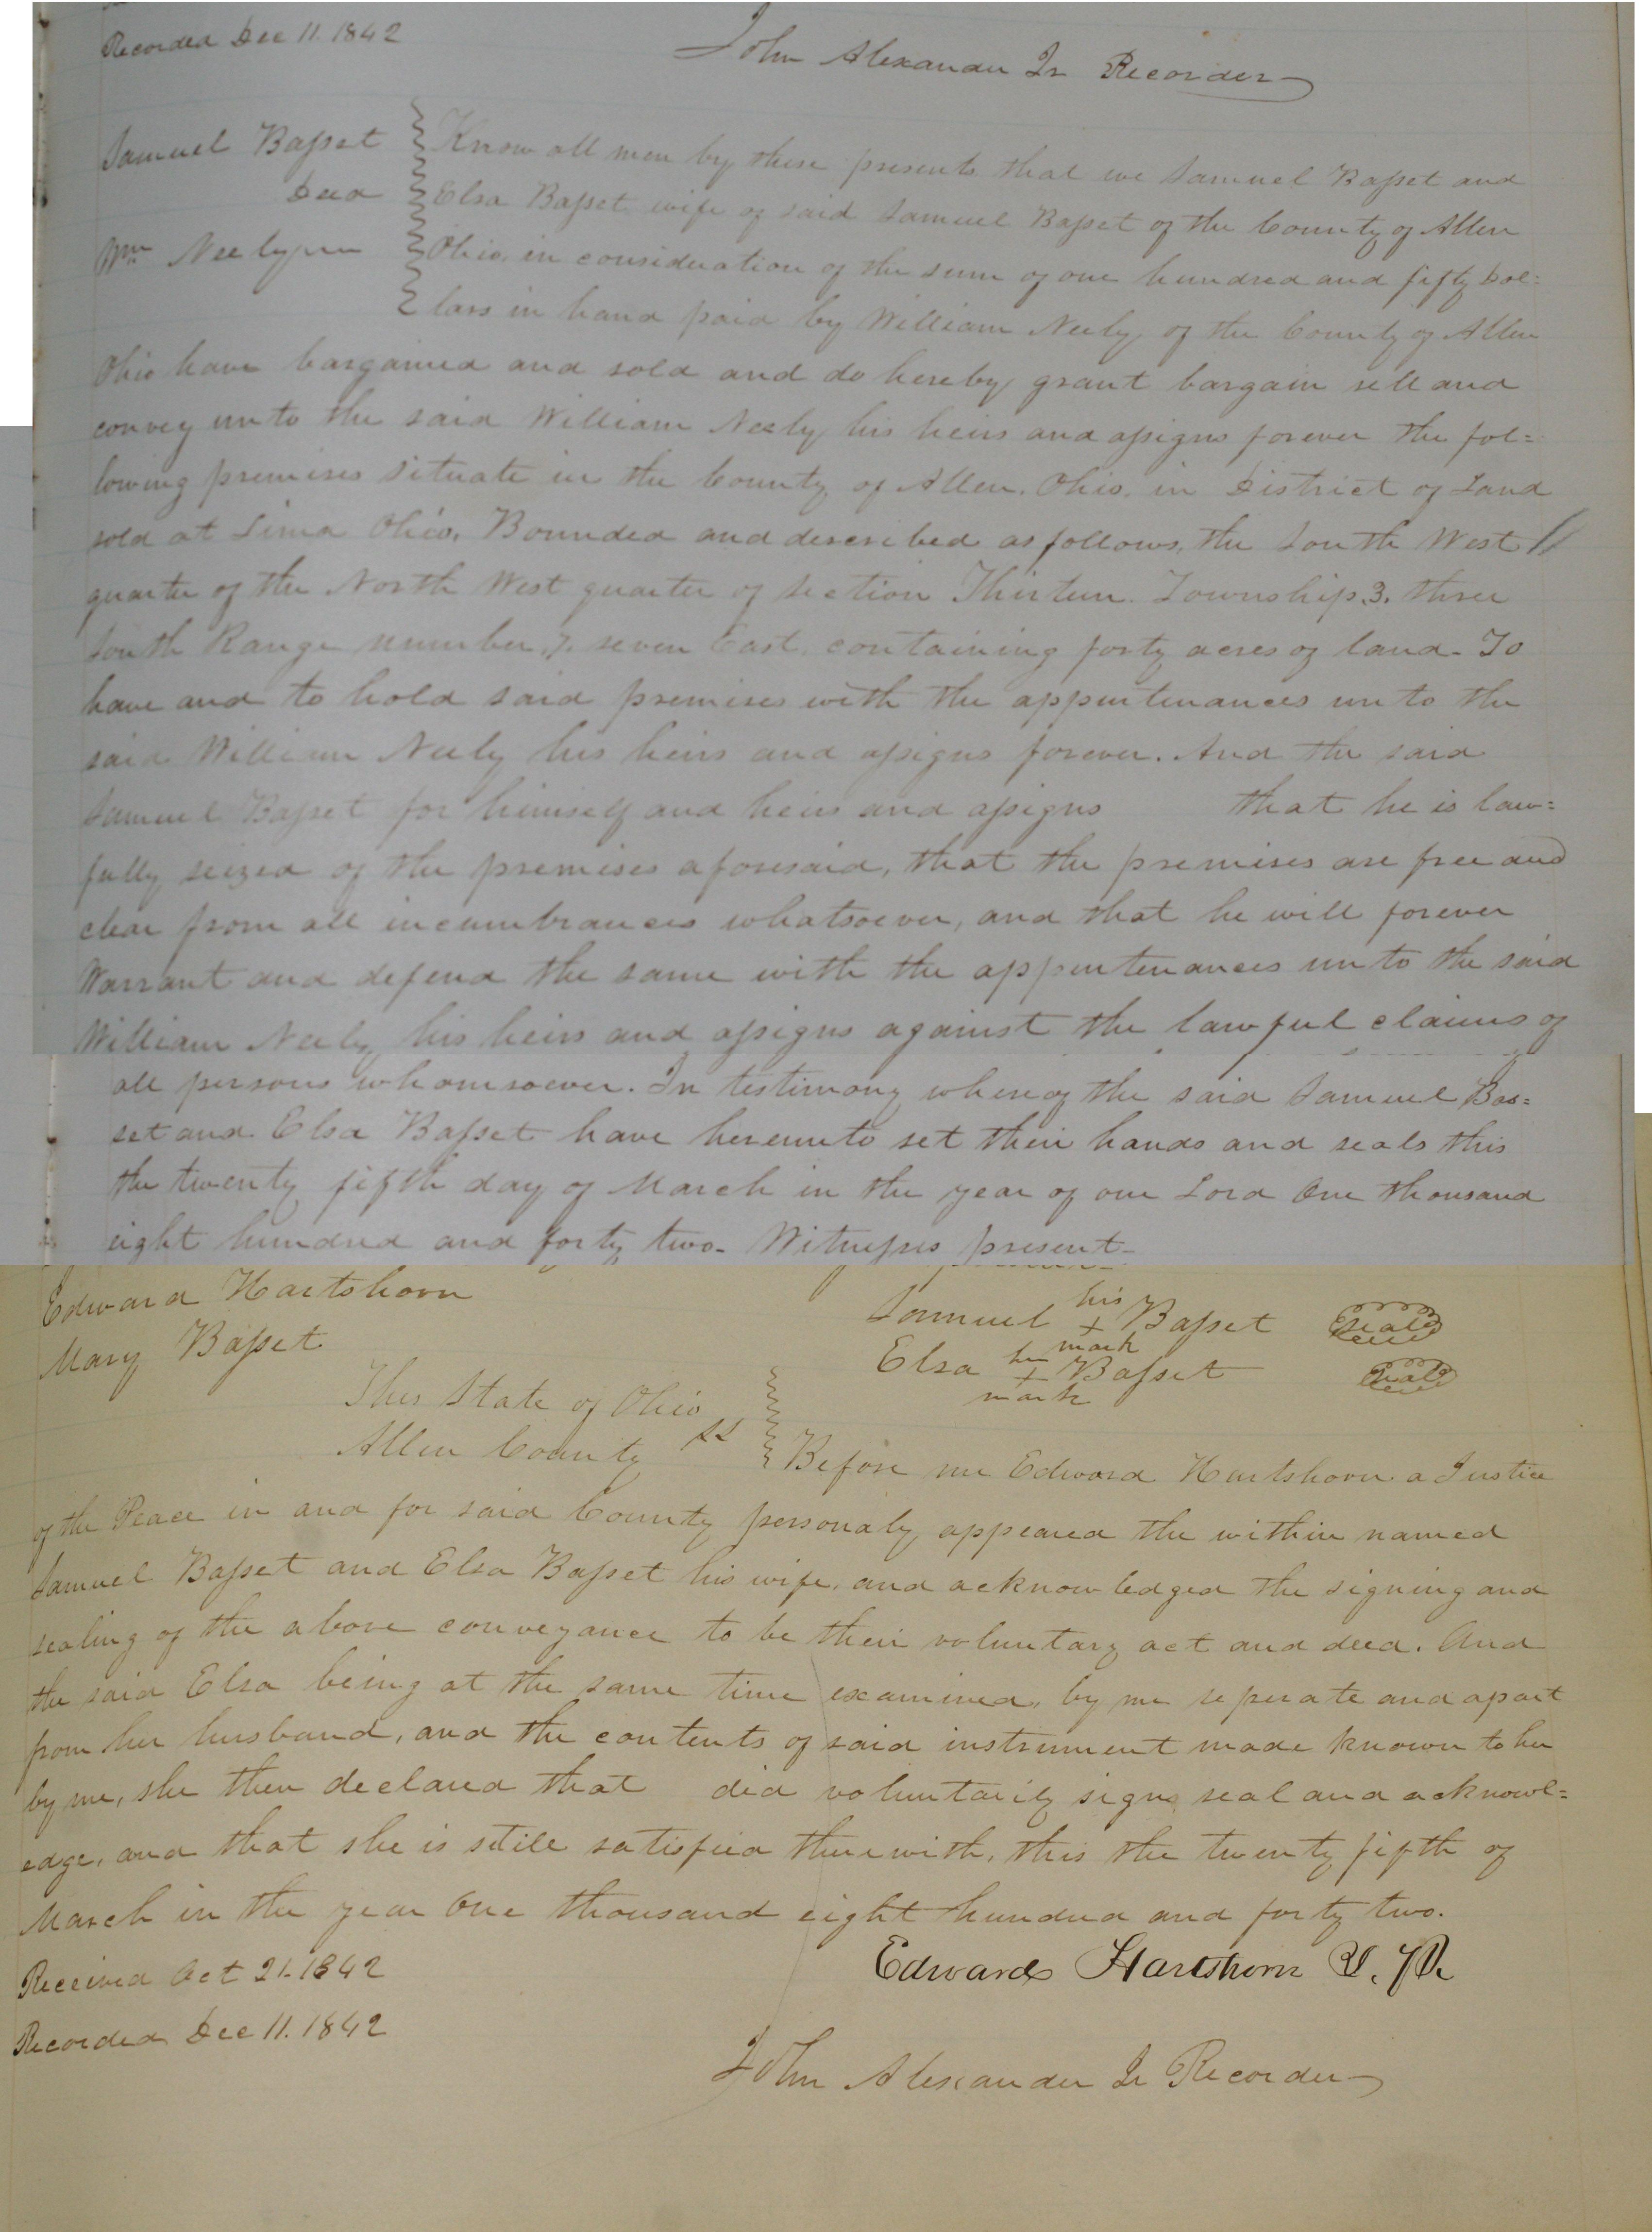 Recorded Dec 11. 1842
John Alexander Jr Recorder
Samuel Baſset
Deed
Wm Neely
Know all men by these presents that we Samuel Baſset and
Elsa Baſset wife of said Samuel Baſset of the County of Allen
Ohio, in consideration of the sum of one hundred and fifty Dol=
lars in hand paid by William Neely of the County of Allen
Ohio have bargained and sold and do hereby grant bargain sell and
convey unto the said William Neely his heirs and aſsigns forever the fol=
lowing premises situate in the County of Allen. Ohio. in District of Land
sold at Lima Ohio, Bounded and described as follows, the South West
quarter of the North West quarter of Section Thirteen. Township .3. three
South Range number .7. seven East, containing forty acres of land - To
have and to hold said premises with the appurtenances unto the
said William Neely his heirs and aſsigns forever. And the said
Samuel Baſset for himself and heirs and aſsigns that he is law=
fully seized of the premises aforesaid, that the premises are free and
clear from all incumbrances whatsoever, and that he will forever
Warrant and defend the same with the appurtenances unto the said
William Neely his heirs and aſsigns against the lawful claims of
all persons whomsoever. In testimony whereof the said Samuel Bas=
set and Elsa Baſset have hereunto set their hands and seals this
the twenty fifth day of March in the year of our Lord One thousand
eight hundred and forty two - Witneſses present -
Edward Hartshorn
Mary Baſset
his
Samuel + Baſset seal
mark
her
Elsa + Baſset seal
mark
The State of Ohio
Allen County SS
Before me Edward Hartshorn a Justice
of the Peace in and for said County personaly appeared the within named
Samuel Baſset and Elsa Baſset his wife, and acknowledged the signing and
sealing of the above conveyance to be their voluntary act and deed. And
the said Elsa being at the same time examined, by me seperate and apart
from her husband, and the contents of said instrument made known to her
by me, she then declared that did voluntarily sign, seal and acknowl=
edge, and that she is still satisfied therewith, this the twenty fifth of
March in the year One thousand eight hundred and forty two.
Edward Hartshorn J. P.
Received Oct 21. 1842
Recorded Dec 11. 1842
John Alexander Jr Recorder